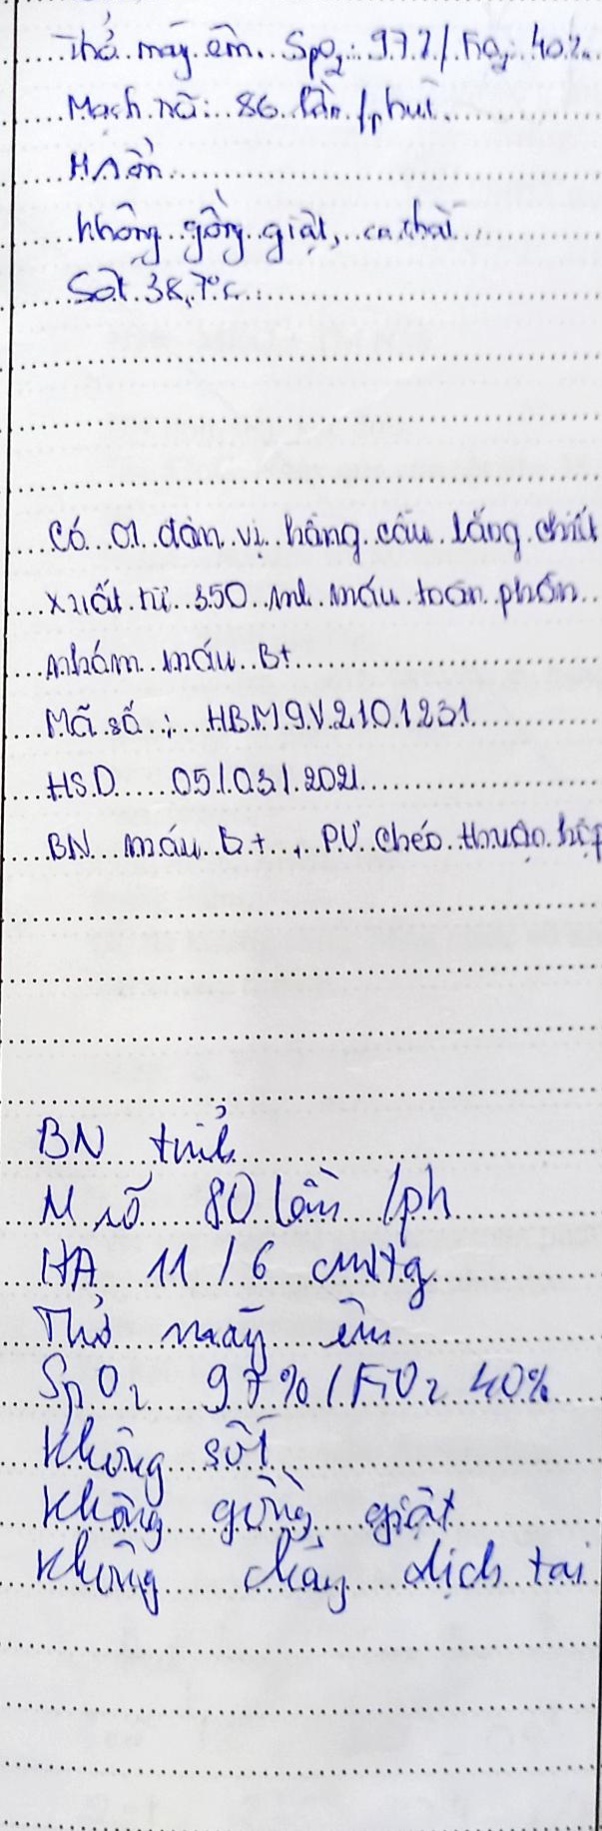 Thở máy êm. SpO2: 97%/ FiO2: 40%
Mạch rõ: 86 lần /phút
HA ổn
Không gồng giật, co thắt
Sốt 38,7°c
Có 01 đơn vị hồng cầu lắng chiết
xuất từ 350 ml máu toàn phần
nhóm máu B+
Mã số : HBM9V2101231
HSD 05/03/2021
BN máu B+, PƯ chéo thuận hợp
BN tỉnh
M rõ 80 lần /ph
HA 11 / 6 cmHg
Thở máy êm
SpO2 97% / FiO2 40%
Không sốt
Không gồng giật
Không chảy dịch tai